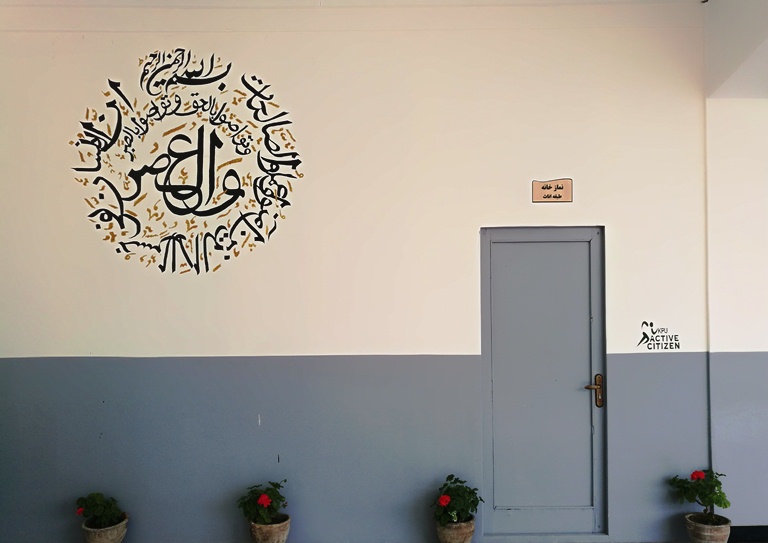 بسم الله الرحمن الرحيم
والعصر
ان الانسان لفي خسر
الا الذين امنو وعملوا الصالحات
وتواصوا بالحق وتواصوا بالصبر
نماز خانه
طبقه اناث
KPU
ACTIVE
CITIZEN